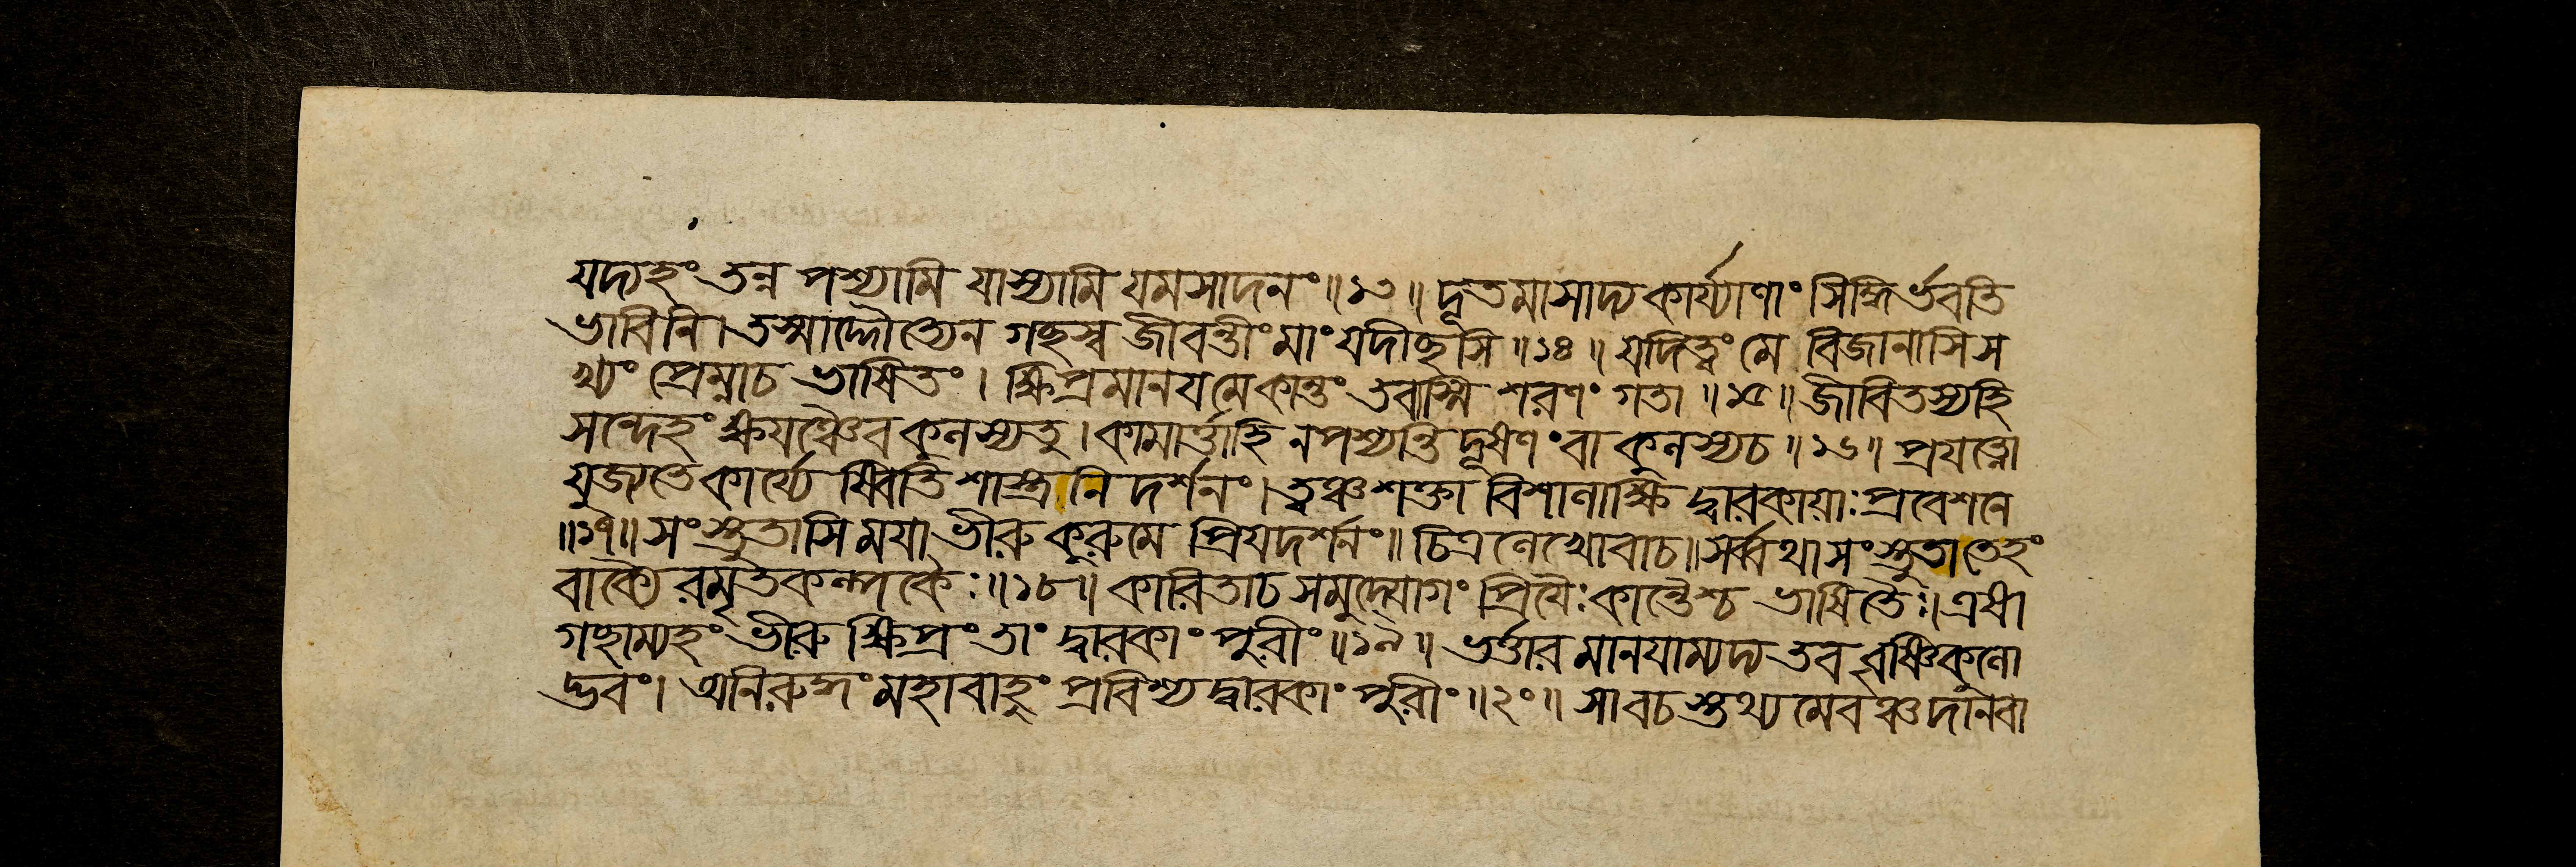 যদ্যহং তন্ন পশ্যামি যাস্যামি যমসাদনং ॥১৩॥ দূতমাসাদ্য কার্য্যাণাং সিদ্ধির্ভবতি
ভাবিনি। তস্মাদ্দৌত্যেন গচ্ছস্ব জীবন্তীং মাং যদীচ্ছসি ॥১৪॥ যদিত্বং মে বিজানাসি স
খ্যং প্রেম্নাচ ভাষিতং। ক্ষিপ্রমানয মেকান্তং তবাস্মি শরণং গতা ॥১৫॥ জীবিতস্যহি
সন্দেহং ক্ষযঞ্চৈব কুলস্যতু। কামার্ত্তাহি নপশ্যন্তি দূষণং বা কুলস্যচ ॥১৬॥ প্রযত্নো
যুজ্যতে কার্য্যে ষ্বিতি শাস্ত্রনি দর্শনং। ত্বঞ্চশক্তা বিশালাক্ষি দ্বারকাযাঃ প্রবেশনে
॥১৭॥ সংস্তুতাসি মযা ভীরু কুরুমে প্রিযদর্শনং॥ চিত্রলেখোবাচ॥ সর্ব্বথা সংস্তুতা তেহং
বাক্যৈ রমৃতকল্পকৈঃ॥১৮॥ কারিতাচ সমুদ্যোগং প্রিযৈঃ কান্তৈশ্চ ভাষিতৈঃ। এষা
গচ্ছাম্যহং ভীরু ক্ষিপ্রং তাং দ্বারকাং পুরীং ॥১৯॥ ভর্ত্তার মানযাম্যদ্য তব বৃষ্ণিকুলো
দ্ভবং। অনিরুদ্ধং মহাবাহুং প্রবিশ্য দ্বারকাং পুরীং॥২০॥ সা বচ স্তথ্য মেবঞ্চ দানবা